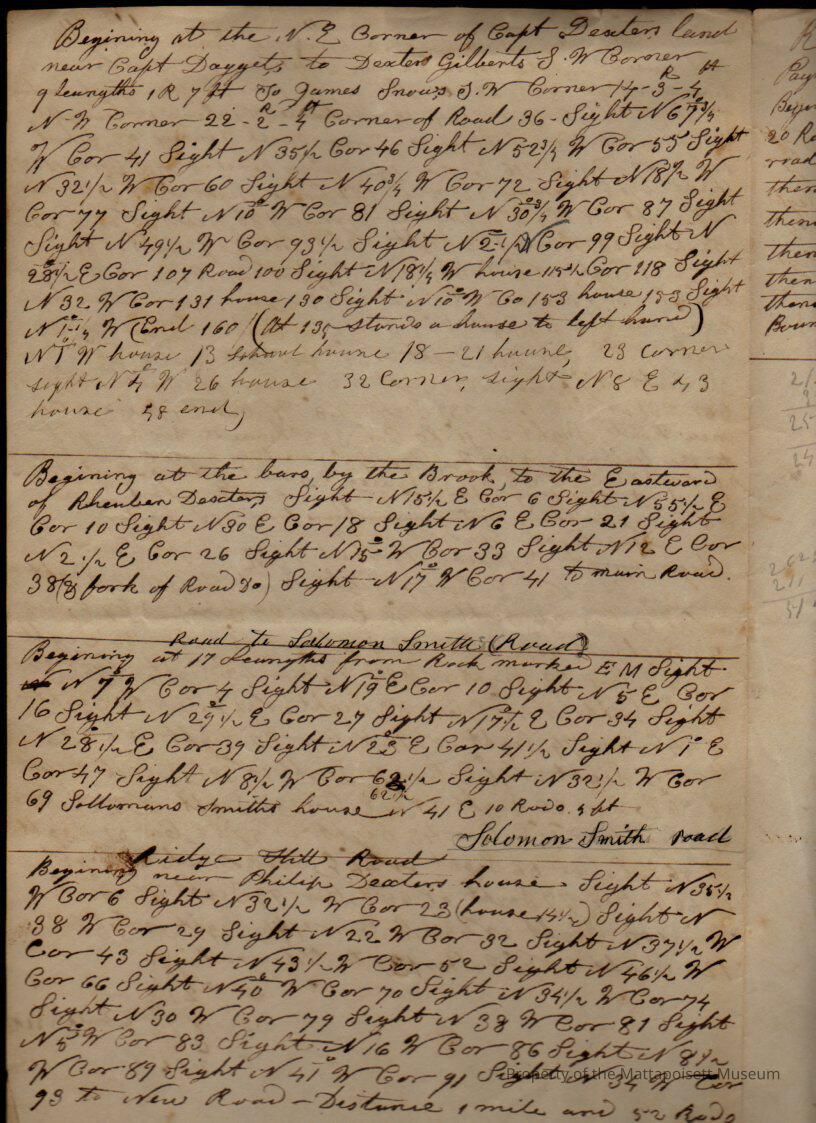 Begining at the N. E Corner of Capt Dexters land
near Capt Daggets to Dexters Gilberts S. W Corner
9 Lengths 1 R 7 ft To James Snows S. W Corner 14 - 3 R - 4 ft
N-W Corner 22 - 2 R - 4 ft Corner of Road 36 - Sight N 67 3/4
W Cor 41 Sight N 35 1/2 Cor 46 Sight N 52 3/4 W Cor 55 Sight
N 32 1/2 W Cor 60 Sight N 40 3/4 W Cor 72 Sight N 18 1/2 W
Cor 77 Sight N 10° W Cor 81 Sight N 30 3/4 W Cor 87 Sight
Sight N 49 1/2 W Cor 93 1/2 Sight N 2 1/2 W Cor 99 Sight N
28 1/2 E Cor 107 Road 100 Sight N 18 1/4 W house Cor 118 Sight
N 32 W Cor 131 house 130 Sight N 10° W Co 153 house 153 Sight
N W (End 160 (At 135 stands a house to left hand)
N 1° W house 13 School house 18 - 21 house, 23 Corner
sight N 4° W 26 house 32 Corner, sight N 8 E 43
house 48 end,
Begining at the bars, by the Brook, to the Eastward
of Rheuben Dexters Sight N 15 1/2 E Cor 6 Sight N 55 1/2 E
Cor 10 Sight N 30 E Cor 18 Sight N 6 E Cor 21 Sight
N 2 1/2 E Cor 26 Sight N 15° W Cor 33 Sight N 12 E Cor
38 (& fork of Road Do) Sight N 17° W Cor 41 to main Road.
Road to Solomon Smith (Road)
Begining at 17 Lengths from Rock marked E M Sight
N 7° W Cor 4 Sight N 19° E Cor 10 Sight N 5 E Cor
16 Sight N 29 1/2 E Cor 27 Sight N 17 1/2 E Cor 34 Sight
N 28 1/2 E Cor 39 Sight N 23° E Cor 41 1/2 Sight N 1° E
Cor 47 Sight N 8 1/2 W Cor 62 1/2 Sight N 32 1/2 W Cor
62 1/2
69 Sollomans Smiths house N 41 E 10 Rods 5 ft
Solomon Smith road
Ridge Hill Road
Begining near Philip Dexters house Sight N 35 1/2
W Cor 6 Sight N 32 1/2 W Cor 23 (house 14 1/2) Sight N
38 W Cor 29 Sight N 22 W Cor 32 Sight N 37 1/2 W
Cor 43 Sight N 43 1/2 W Cor 52 Sight N 46 1/2 W
Cor 66 Sight N 40° W Cor 70 Sight N 34 1/2 W Cor 74
Sight N 30 W Cor 79 Sight N 38 W Cor 81 Sight
N 5° W Cor 83 Sight N 16 W Cor 86 Sight N 8 1/2
W Cor 89 Sight N 41° W Cor 91 Sight N 34 W Cor
93 to New Road - Distance 1 mile and 52 Rods
Property of the Mattapoisett Museum